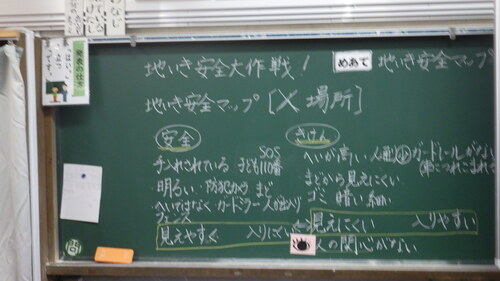 発表の仕方
はい、
です。
地いき安全大作戦!
めあて
地いき安全マップ
地いき安全マップ[X 場所]
安全
きけん
手入れされている
SOS
こども110番
明るい
防犯カメラ
まど
へいではなく
ガードミラー
人が出入り
フェンス
見えやすく
入りにくい
へいが高い
人通り小
ガードレールがない
まどから見えにくい
ゴミ
暗い
細い
見えにくい
入りやすい
人の関心がない